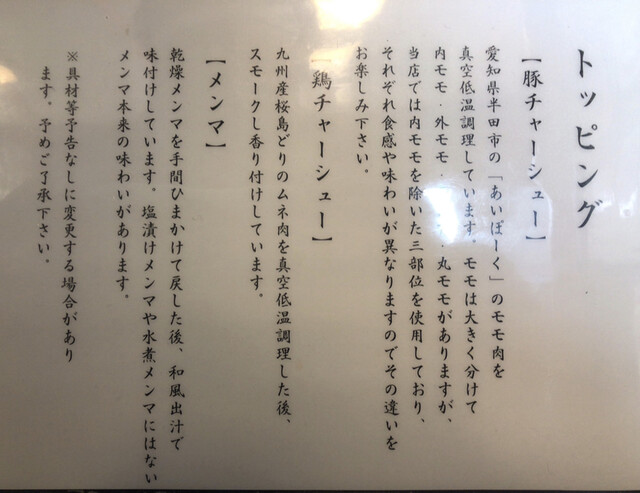 トッピング
【豚チャーシュー】
愛知県半田市の「あいぽーく」のモモ肉を
真空低温調理しています。モモは大きく分けて
内モモ・外モモ・・丸モモがありますが、
当店では内モモを除いた三部位を使用しており、
それぞれ食感や味わいが異なりますのでその違いを
お楽しみ下さい。
【鶏チャーシュー】
九州産桜島どりのムネ肉を真空低温調理した後、
スモークし香り付けしています。
【メンマ】
乾燥メンマを手間ひまかけて戻した後、和風出汁で
味付けしています。塩漬けメンマや水煮メンマにはない
メンマ本来の味わいがあります。
※具材等予告なしに変更する場合があり
ます。予めご了承下さい。